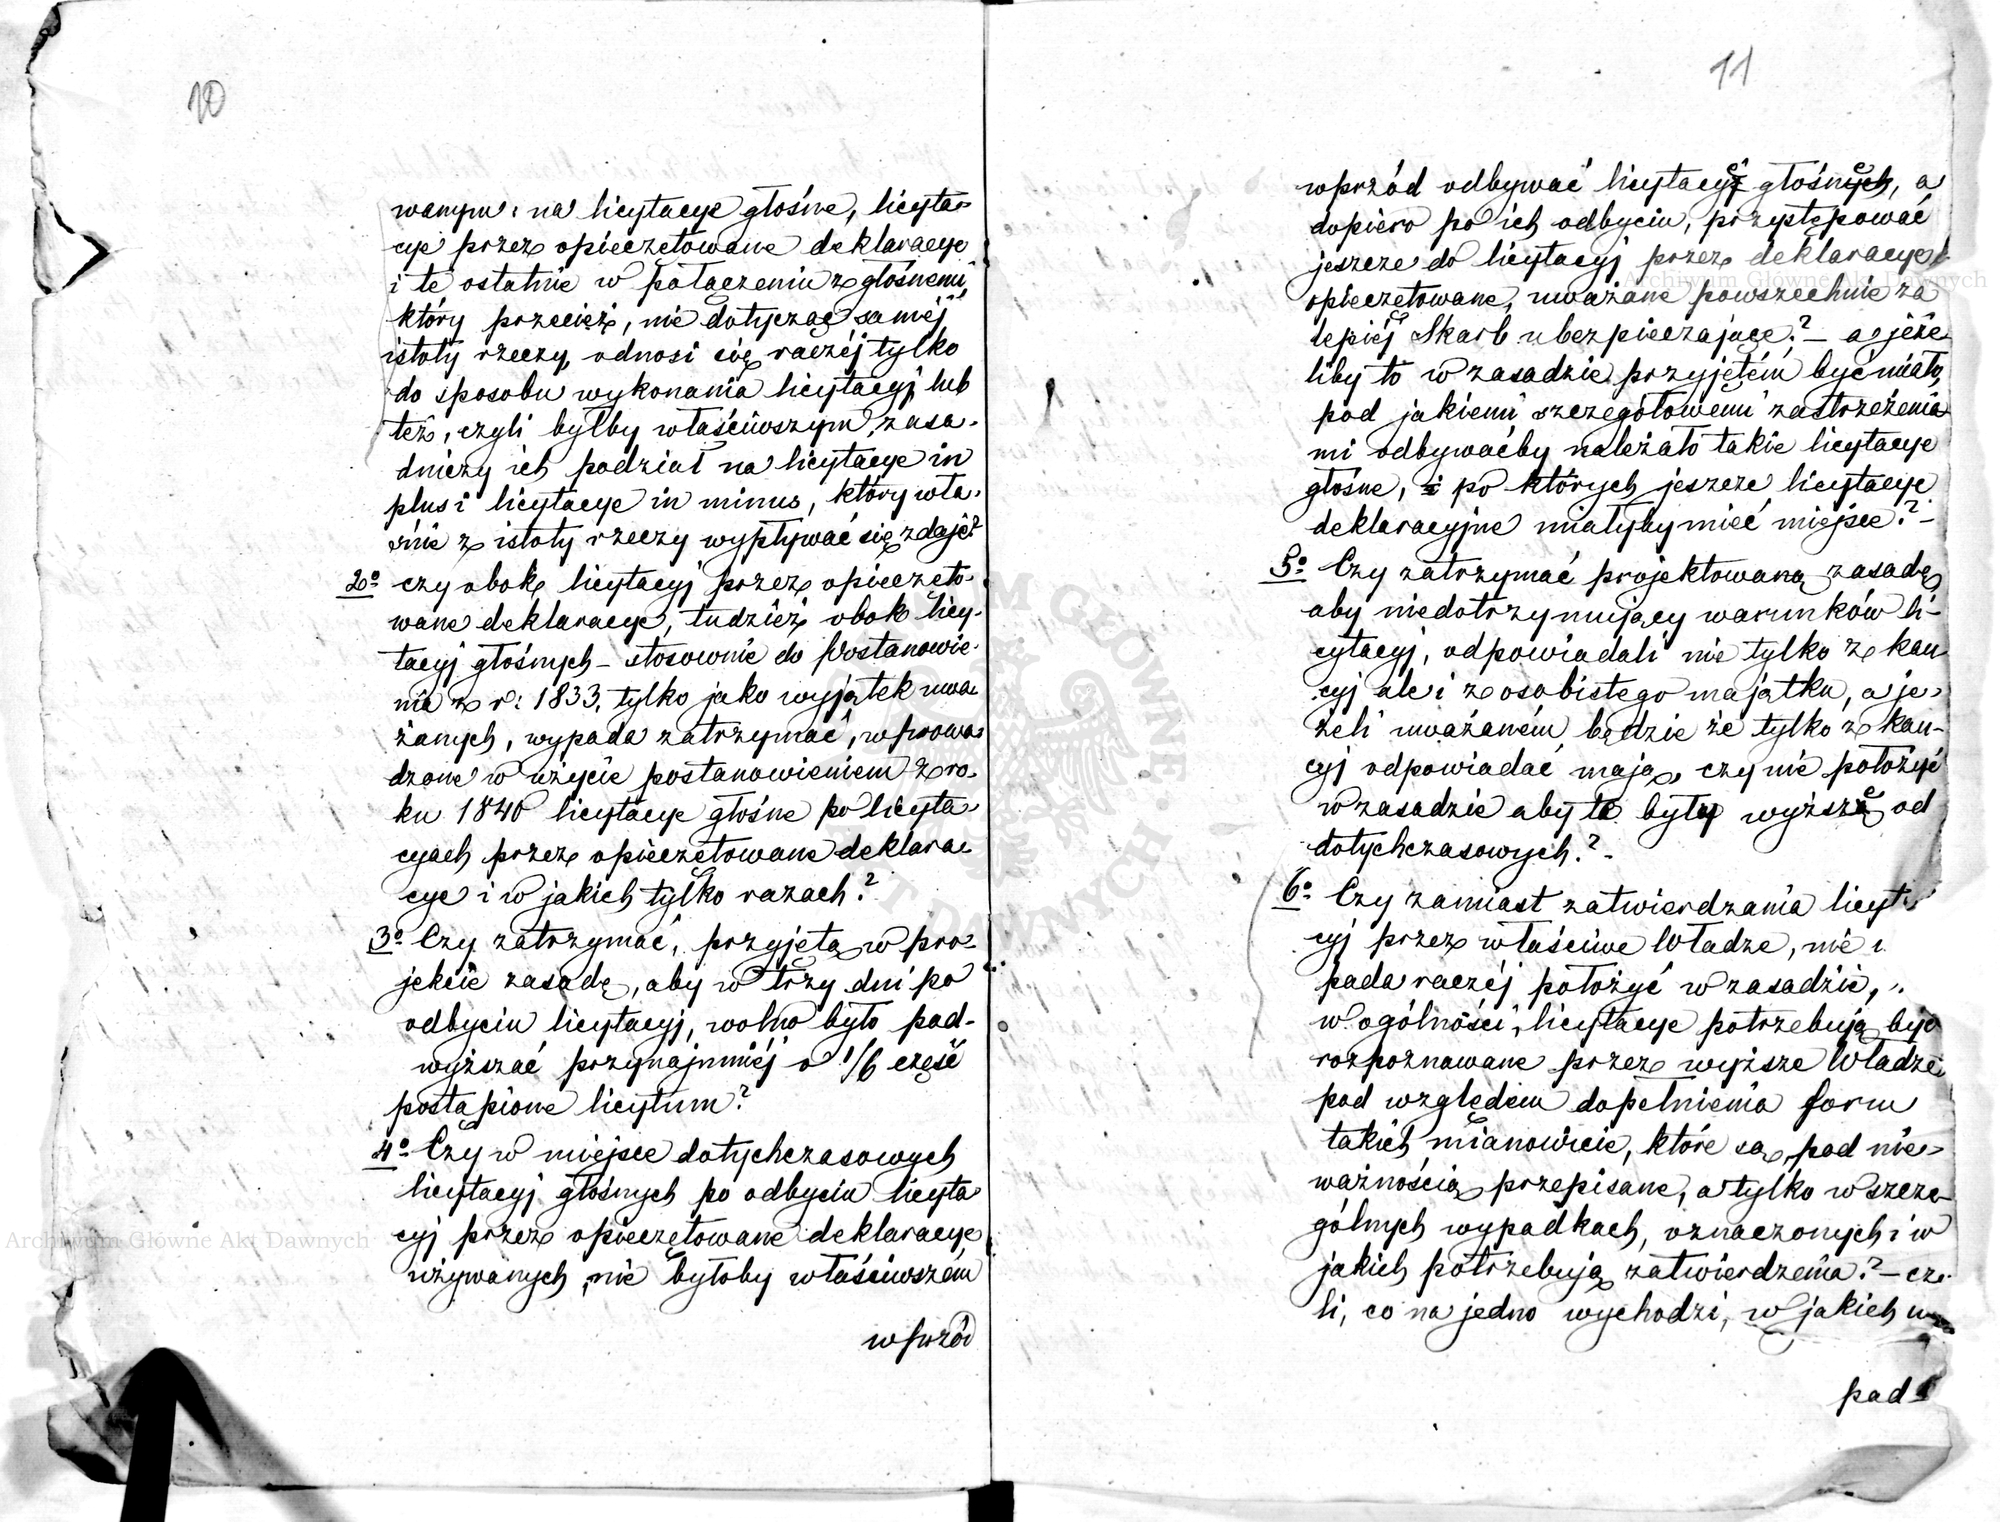 10
wanym: na licytacye głośne, licyta-
cye przez opieczętowane deklaracye
i te ostatnie w połączeniu z głośnemi,
który przecież, nie dotycząc samej
istoty rzeczy, odnosi się raczéj tylko
do sposobu wykonania licytacyj, lub
też, czyli byłby właściwszym, zasa-
dniczy ich podział na licytacye in
plus i licytacye in minus, który wła-
śnie z istoty rzeczy wypływać się zdaje?
2o czy obok licytacyj przez opieczęto-
wane deklaracye, tudzież obok licy-
tacyj głośnych – stosownie do Postanowie-
nia z r: 1833, tylko jako wyjątek uwa-
żanych, wypada zatrzymać, wprowa-
dzone w użycie postanowieniem z ro-
ku 1840 licytacye głośne po licyta-
cyach przez opieczętowane deklara-
cye i w jakich tylko razach?
3o Czy zatrzymać, przyjętą w pro-
jekcie zasadę, aby w trzy dni po
odbyciu licytacyj, wolno było pod-
wyższać przynajmniéj o 1/6 część
postąpione licytum?
4o Czy w miejsce dotychczasowych
licytacyj głośnych po odbyciu licyta-
cyj przez opieczętowane deklaracye
używanych, nie byłoby właściwszém
wprzód
11
wprzód odbywać licytacye głośne, a
dopiero po ich odbyciu, przystępować
jeszcze do licytacyj przez deklaracye
opieczętowane, uważane powszechnie za
lepiéj Skarb ubezpieczające? – a jeże-
liby to w zasadzie przyjętém być miało,
pod jakiemi szczegółowemi zastrzeżenia-
mi odbywaćby należało takie licytacye
głośne, po których jeszcze licytacye
deklaracyjne miałyby mieć miejsce? –
5o Czy zatrzymać projektowaną zasadę
aby niedotrzymujący warunków li-
cytacyj, odpowiadali nie tylko z kau-
cyj ale i z osobistego majątku, a je-
żeli uważaném będzie że tylko z kau-
cyj odpowiadać mają, czy nie położyć
w zasadzie aby te były wyższe od
dotychczasowych? –
6o Czy zamiast zatwierdzania licyta-
cyj przez właściwe Władze, nie
pada raczéj położyć w zasadzie,
w ogólności, licytacye potrzebują być
rozpoznawane przez wyższe Władze
pod względem dopełnienia form
takich mianowicie, które są pod nie-
ważnością przepisane, a tylko w szcze-
gólnych wypadkach, oznaczonych i w
jakich potrzebują zatwierdzenia? – czy-
li, co na jedno wychodzi, w jakich
pad
Archiwum Główne Akt Dawnych
Archiwum Główne Akt Dawnych